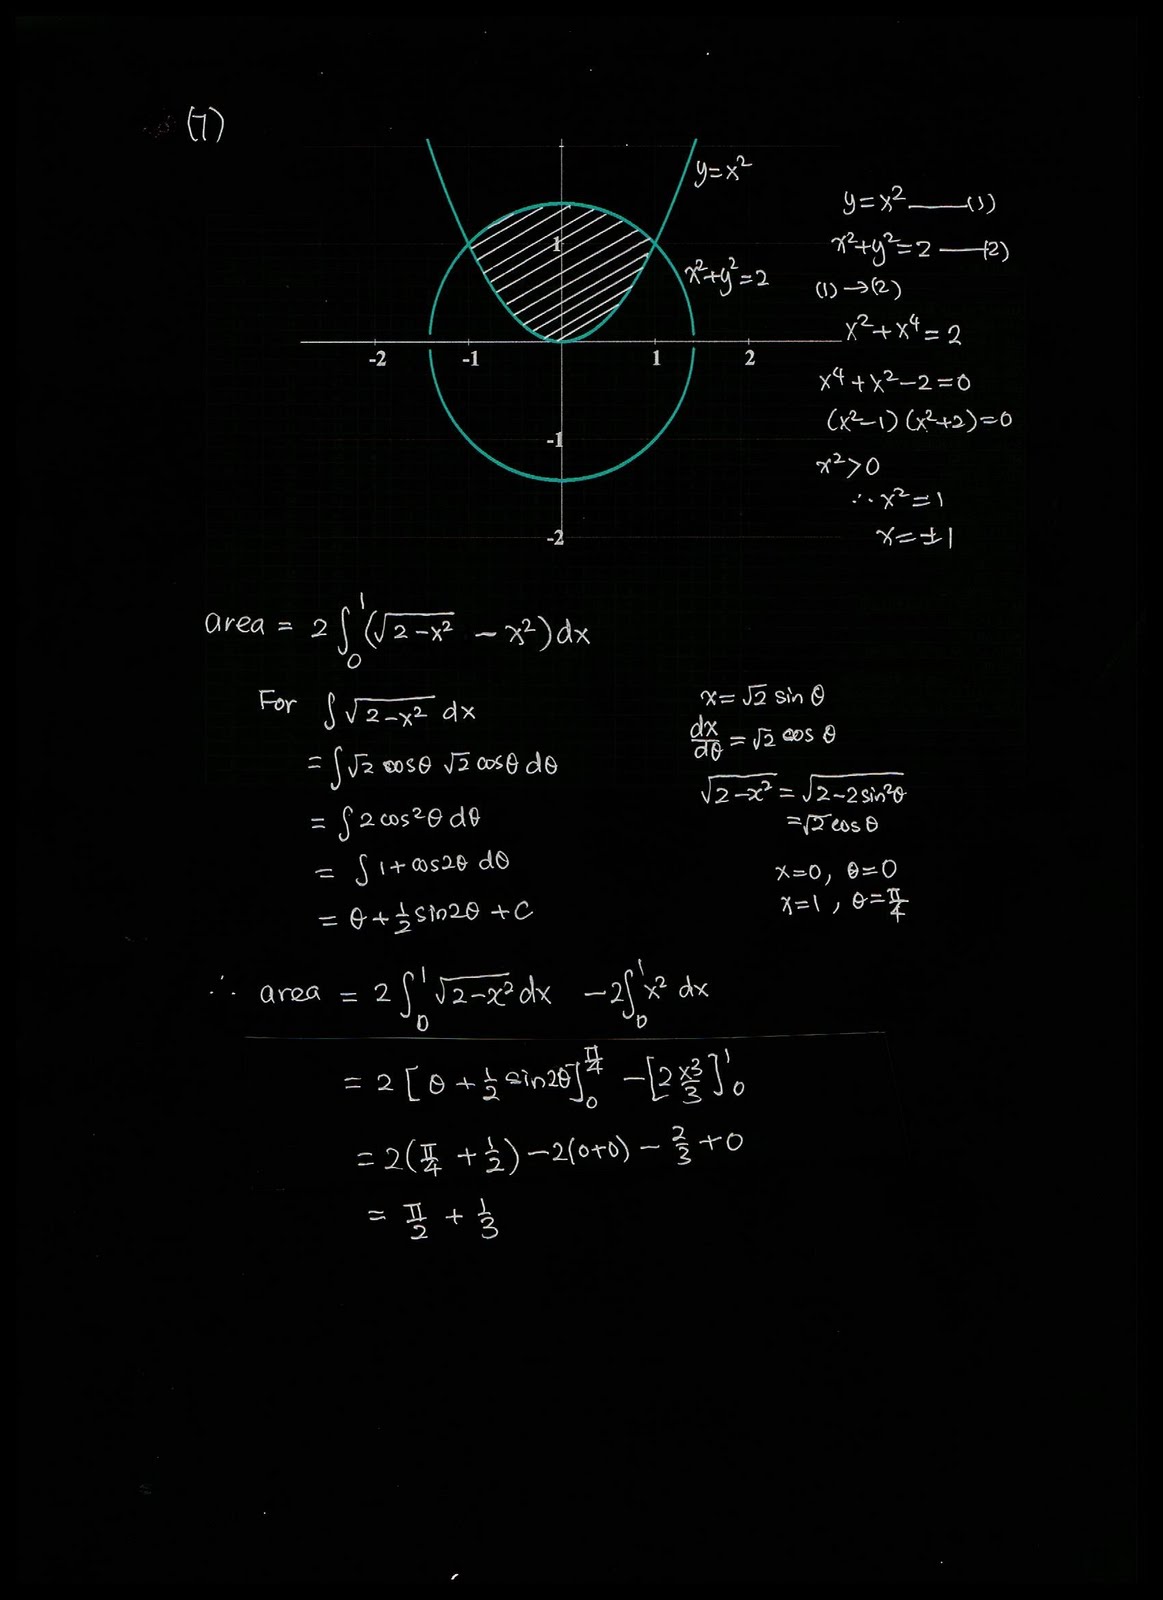 (7)
y=x²
1
x²+y²=2
-2 -1 1 2
-1
-2
y=x² ——(1)
x²+y²=2 ——(2)
(1)→(2)
x²+x⁴=2
x⁴+x²-2=0
(x²-1)(x²+2)=0
x²>0
∴x²=1
x=±1
area = 2∫₀¹(√(2-x²) - x²)dx
For ∫√(2-x²) dx
=∫√2 cosθ √2 cosθ dθ
= ∫2cos²θ dθ
= ∫1+cos2θ dθ
= θ+½sin2θ+C
x=√2 sin θ
dx/dθ = √2 cos θ
√(2-x²) = √(2-2sin²θ)
=√2 cosθ
x=0, θ=0
x=1, θ=π/4
∴ area = 2∫₀¹√(2-x²) dx -2∫₀¹x² dx
= 2[θ+½sin2θ]₀^(π/4) -[2x³/3]₀¹
=2(π/4 + ½)-2(0+0) - 2/3 +0
= π/2 + 1/3